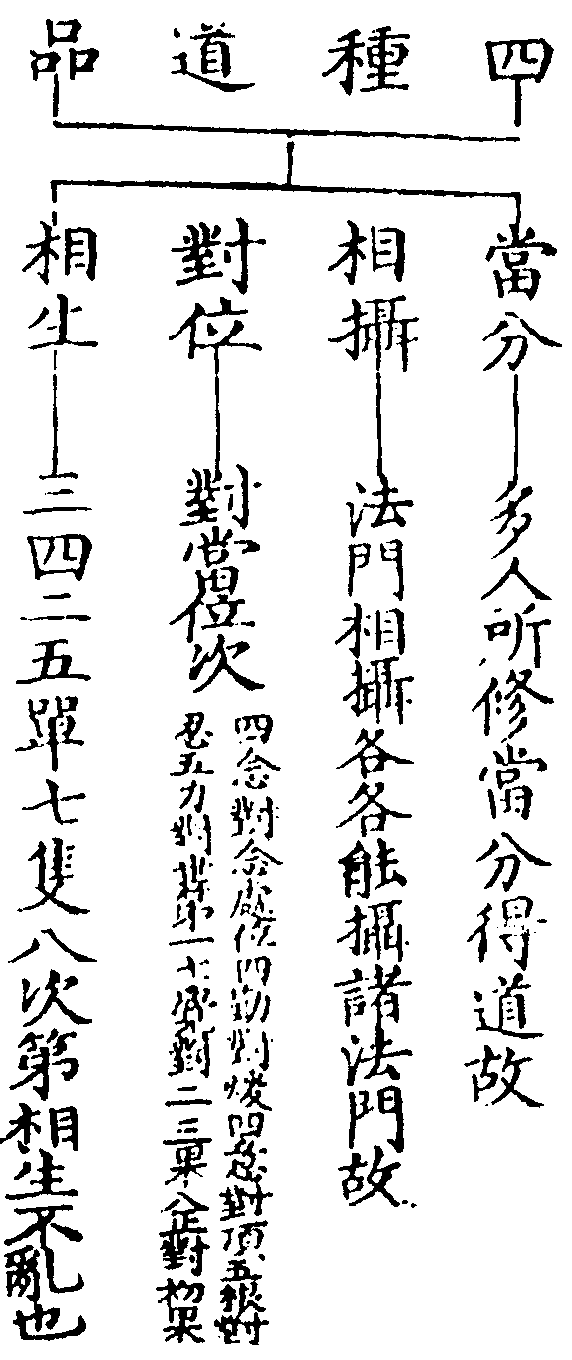 四種道品
當分
多人所修當分得道故
相攝
法門相攝各各能攝諸法門故
對位
對當位次
四念對念處位四勤對煖四意對頂五根對
忍五力對世第一七覺對二三果八正對初果
相生
三四二五單七隻八次第相生不亂也